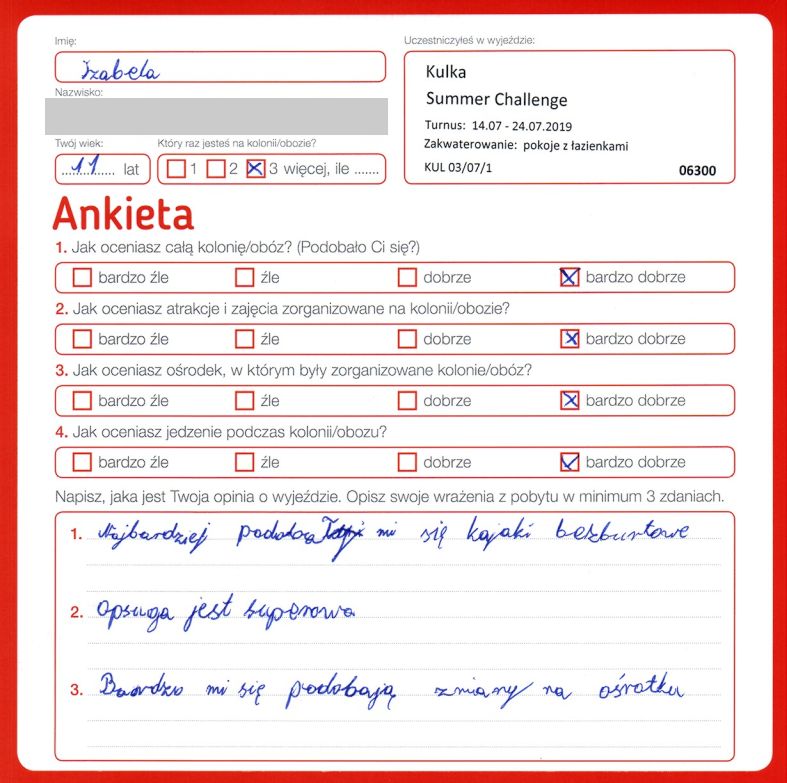 Imię:
Izabela
Uczestniczyłeś w wyjeździe:
Kulka
Summer Challenge
Turnus: 14.07 - 24.07.2019
Zakwaterowanie: pokoje z łazienkami
KUL 03/07/1 06300
Nazwisko:
Twój wiek:
11 lat
Który raz jesteś na kolonii/obozie?
1 2 3 więcej, ile .......
Ankieta
1. Jak oceniasz całą kolonię/obóz? (Podobało Ci się?)
bardzo źle źle dobrze bardzo dobrze
2. Jak oceniasz atrakcje i zajęcia zorganizowane na kolonii/obozie?
bardzo źle źle dobrze bardzo dobrze
3. Jak oceniasz ośrodek, w którym były zorganizowane kolonie/obóz?
bardzo źle źle dobrze bardzo dobrze
4. Jak oceniasz jedzenie podczas kolonii/obozu?
bardzo źle źle dobrze bardzo dobrze
Napisz, jaka jest Twoja opinia o wyjeździe. Opisz swoje wrażenia z pobytu w minimum 3 zdaniach.
1. Najbardziej mi się kajaki bezburtowe
2. Opsuga jest superowa
3. Baardzo mi się podobają zmiany na ośrotku